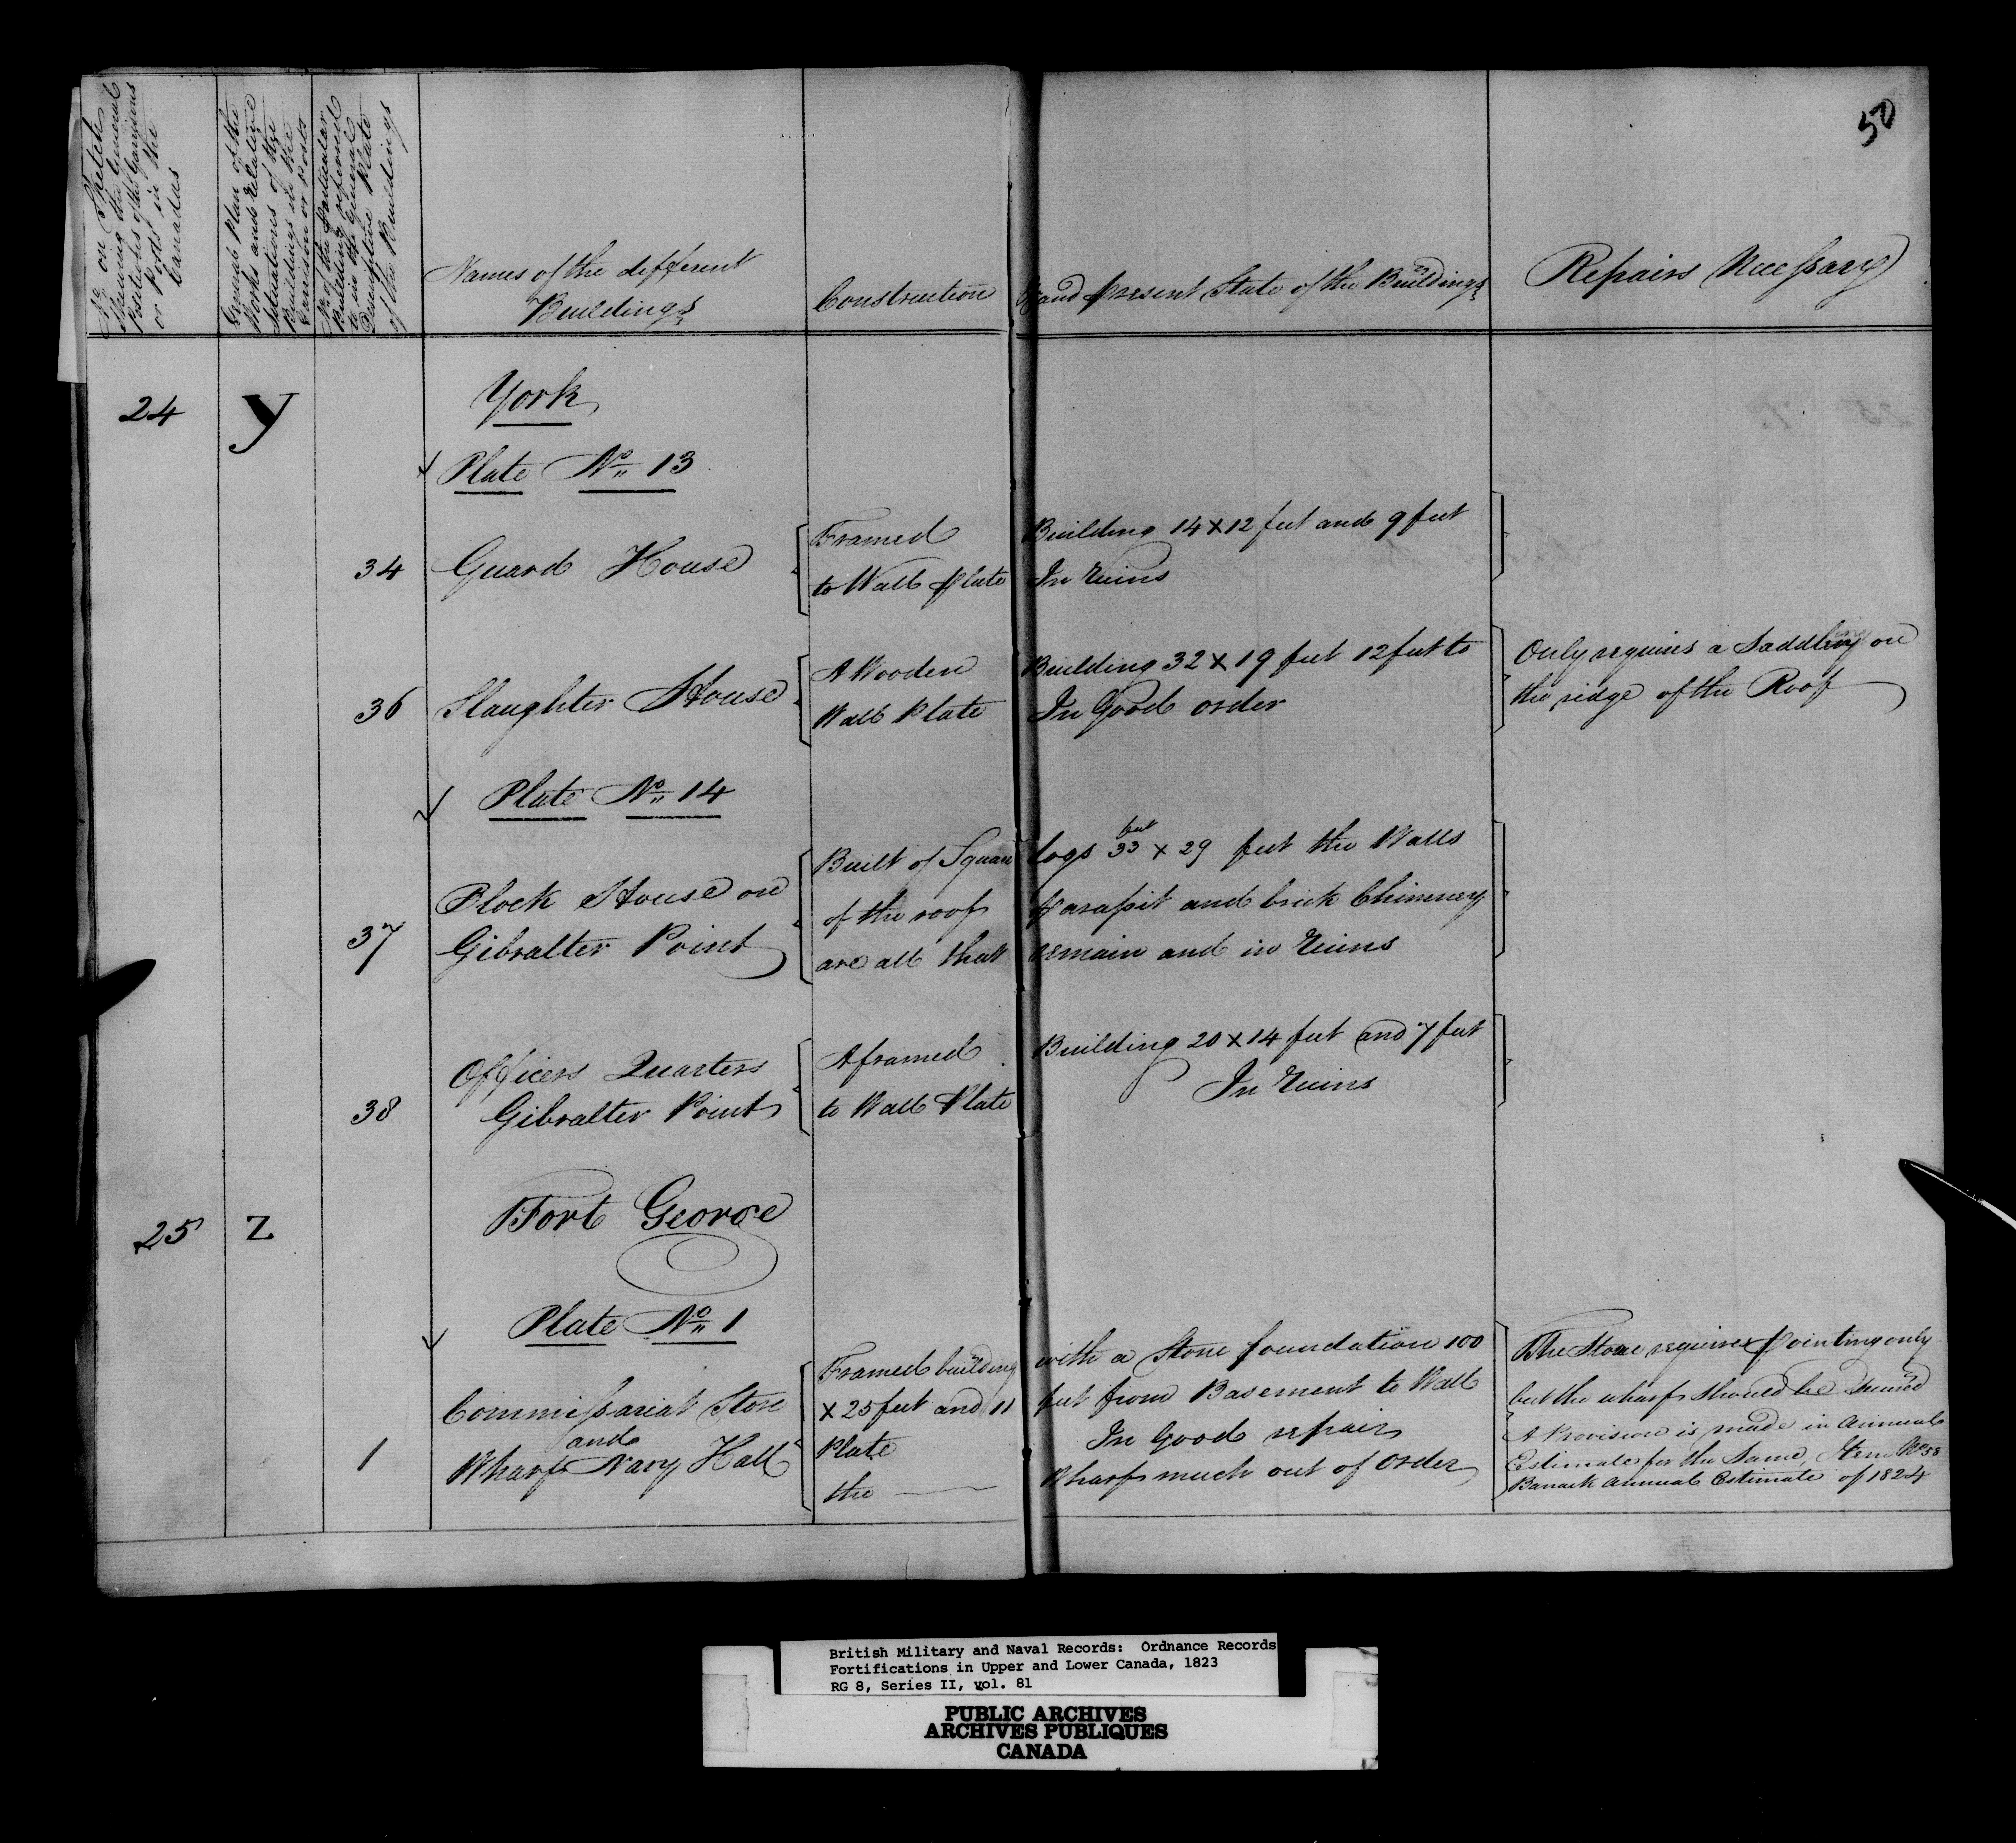 50
No on Sketch
Shewing the General
Positions of the Garrisons
or Posts in the
Canadas
General Plan of the
Works and relative
Situations of the
Buildings in the
Garrison or Posts
No of the Particular
Building referred
to in the General
Descriptive Plate
of the Buildings
Names of the different
Buildings
Construction and present State of the Buildings
Repairs Necessary
24 Y York
Plate No 13
34 Guard House
Framed Building 14 x 12 feet and 9 feet
to Wall Plate In ruins
36 Slaughter House
A Wooden Building 32 x 19 feet 12 feet to
Wall Plate In Good order
Only requires a Saddling on
the ridge of the Roof
Plate No 14
37 Block House on
Gibralter Point
Built of Square logs 33 feet x 29 feet the Walls
of the roof Parapit and brick Chimney
are all that remain and in ruins
38 Officers Quarters
Gibralter Point
A framed Building 20 x 14 feet and 7 feet
to Wall Plate In ruins
25 Z Fort George
Plate No 1
1 Commissariat Store
and
Wharf Navy Hall
Framed building with a Stone foundation 100
x 25 feet and 11 feet from Basement to Wall
Plate In Good repair
the Wharf much out of order
The Stone requires pointing only
but the wharf should be
A Provision is made in Annual
Estimate for the Same, Item No 58
Barrack Annual Estimate of 1824
British Military and Naval Records: Ordnance Records
Fortifications in Upper and Lower Canada, 1823
RG 8, Series II, vol. 81
PUBLIC ARCHIVES
ARCHIVES PUBLIQUES
CANADA